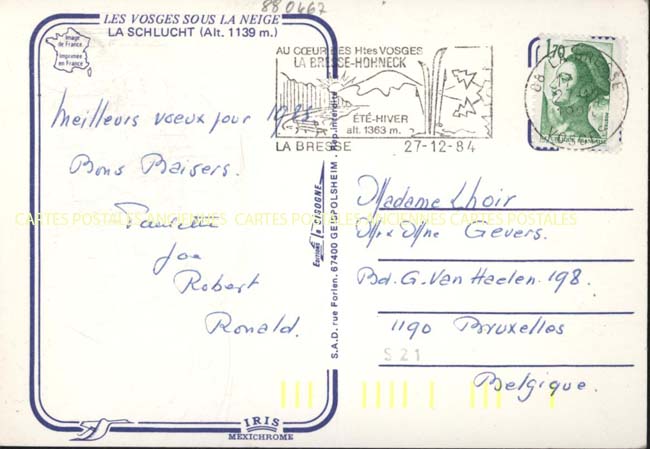 88 0467
LES VOSGES SOUS LA NEIGE
LA SCHLUCHT (Alt. 1139 m.)
Image
de France
Imprimée
en France
AU CŒUR DES Htes VOSGES
LA BRESSE-HOHNECK
ÉTÉ-HIVER
alt. 1363 m.
LA BRESSE 27-12-84
1,70
Meilleurs vœux pour 1985
Bons Baisers.
Joe
Robert
Ronald.
Editions la CIGOGNE
S.A.D. rue Forlen. 67400 GEISPOLSHEIM - Rep. interdite
Madame Lhoir
Mr x Mme Gevers.
Bd. G. Van Haelen 198.
1190 Bruxelles
S 21
Belgique.
CARTES POSTALES ANCIENNES CARTES POSTALES ANCIENNES CARTES POSTALES
IRIS
MEXICHROME